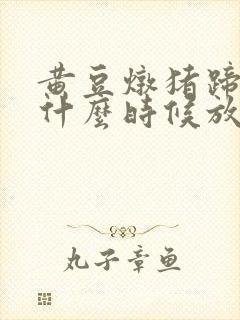 黄豆燉猪蹄
什麼時候放
丸子章鱼